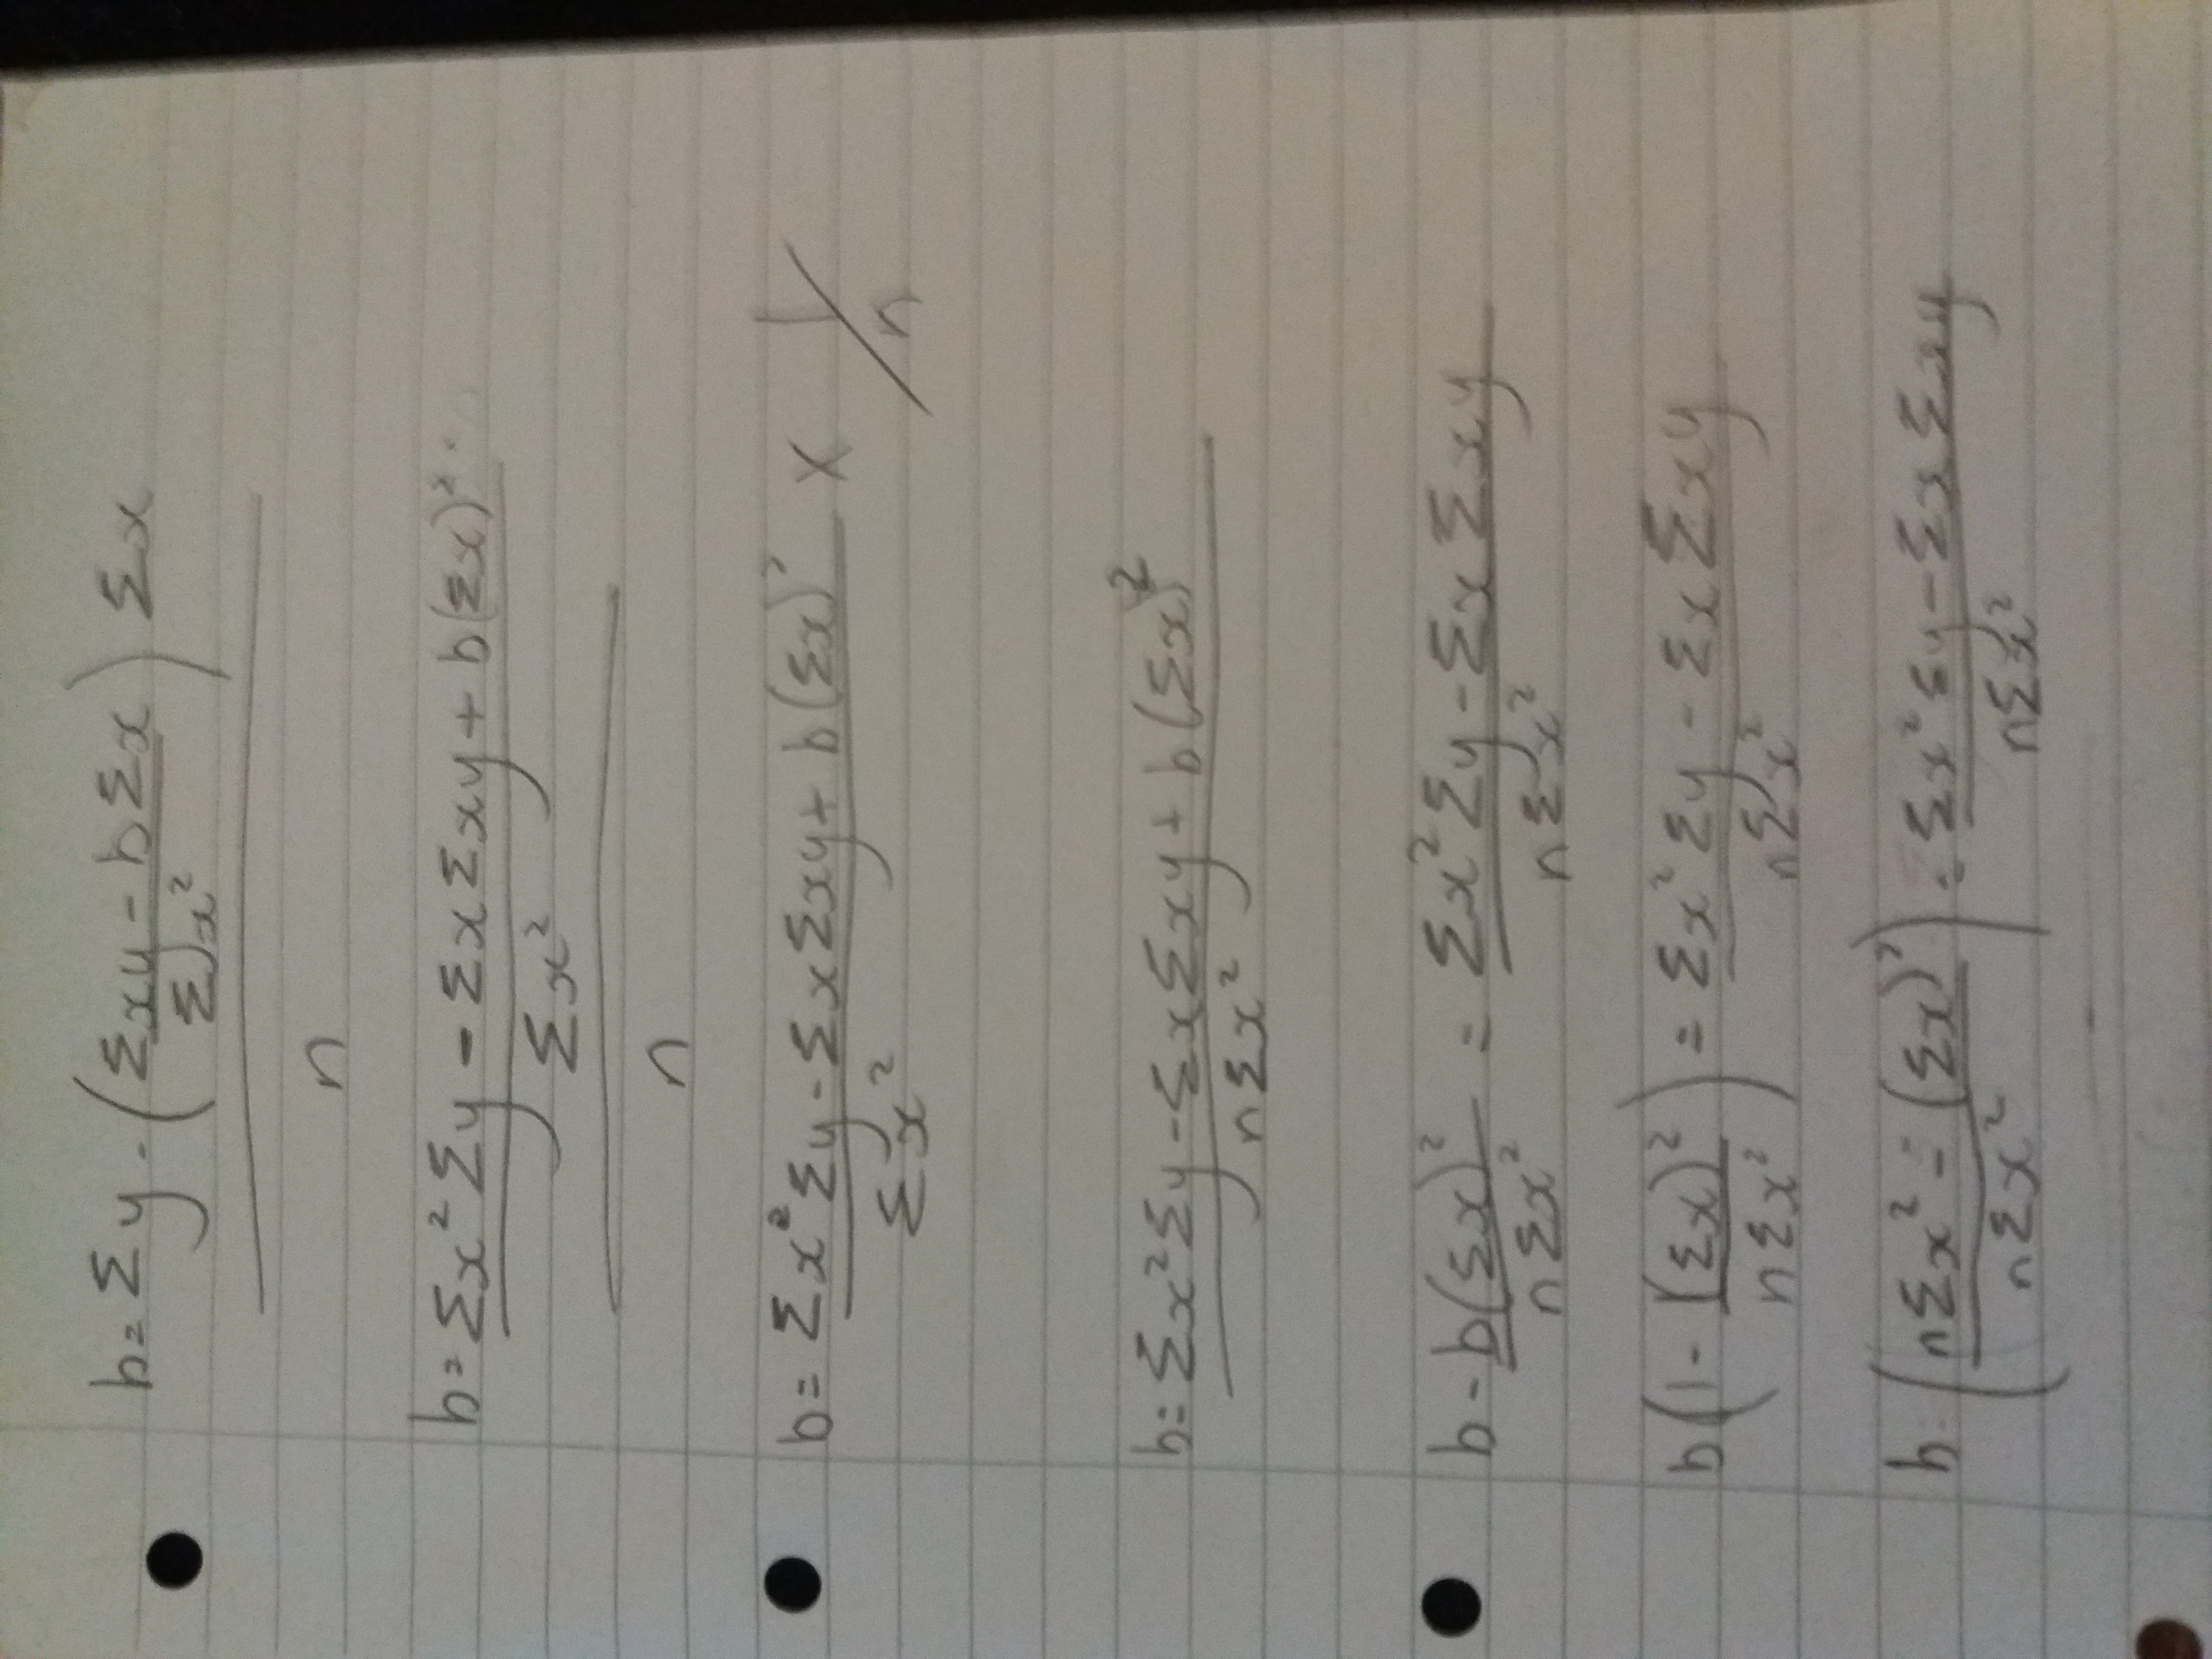 b = Σy - (Σxy - bΣx / Σx²) Σx
n
b = Σx²Σy - ΣxΣxy + b(Σx)²
Σx²
n
b = Σx²Σy - ΣxΣxy + b(Σx)² × 1/n
Σx²
b = Σx²Σy - ΣxΣxy + b(Σx)²
nΣx²
b - b(Σx)² = Σx²Σy - ΣxΣxy
nΣx² nΣx²
b(1 - (Σx)² / nΣx²) = Σx²Σy - ΣxΣxy
nΣx²
b (nΣx² - (Σx)² / nΣx²) = Σx²Σy - ΣxΣxy
nΣx²